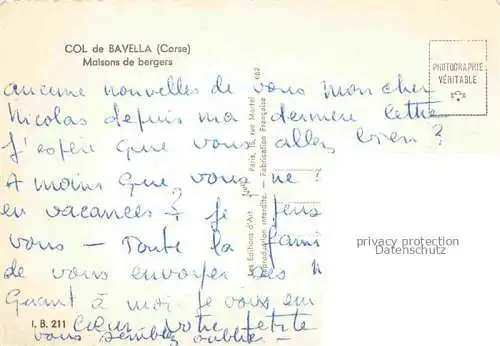 COL de BAVELLA (Corse)
Maisons de bergers
PHOTOGRAPHIE
VÉRITABLE
aucune nouvelles de vous mon cher
Nicolas depuis ma dernière lettre
J'espère que vous allez bien ?
A moins que vous ne
en vacances ? je
vous - Toute la fami
de vous envoyer ses
Quant à moi je vous em
cœur votre petite
vous semblez oublier -
I. B. 211
Les Editions d'Art
Paris, 15, rue Martel
Reproduction interdite. - Fabrication Française
662
privacy protection
Datenschutz